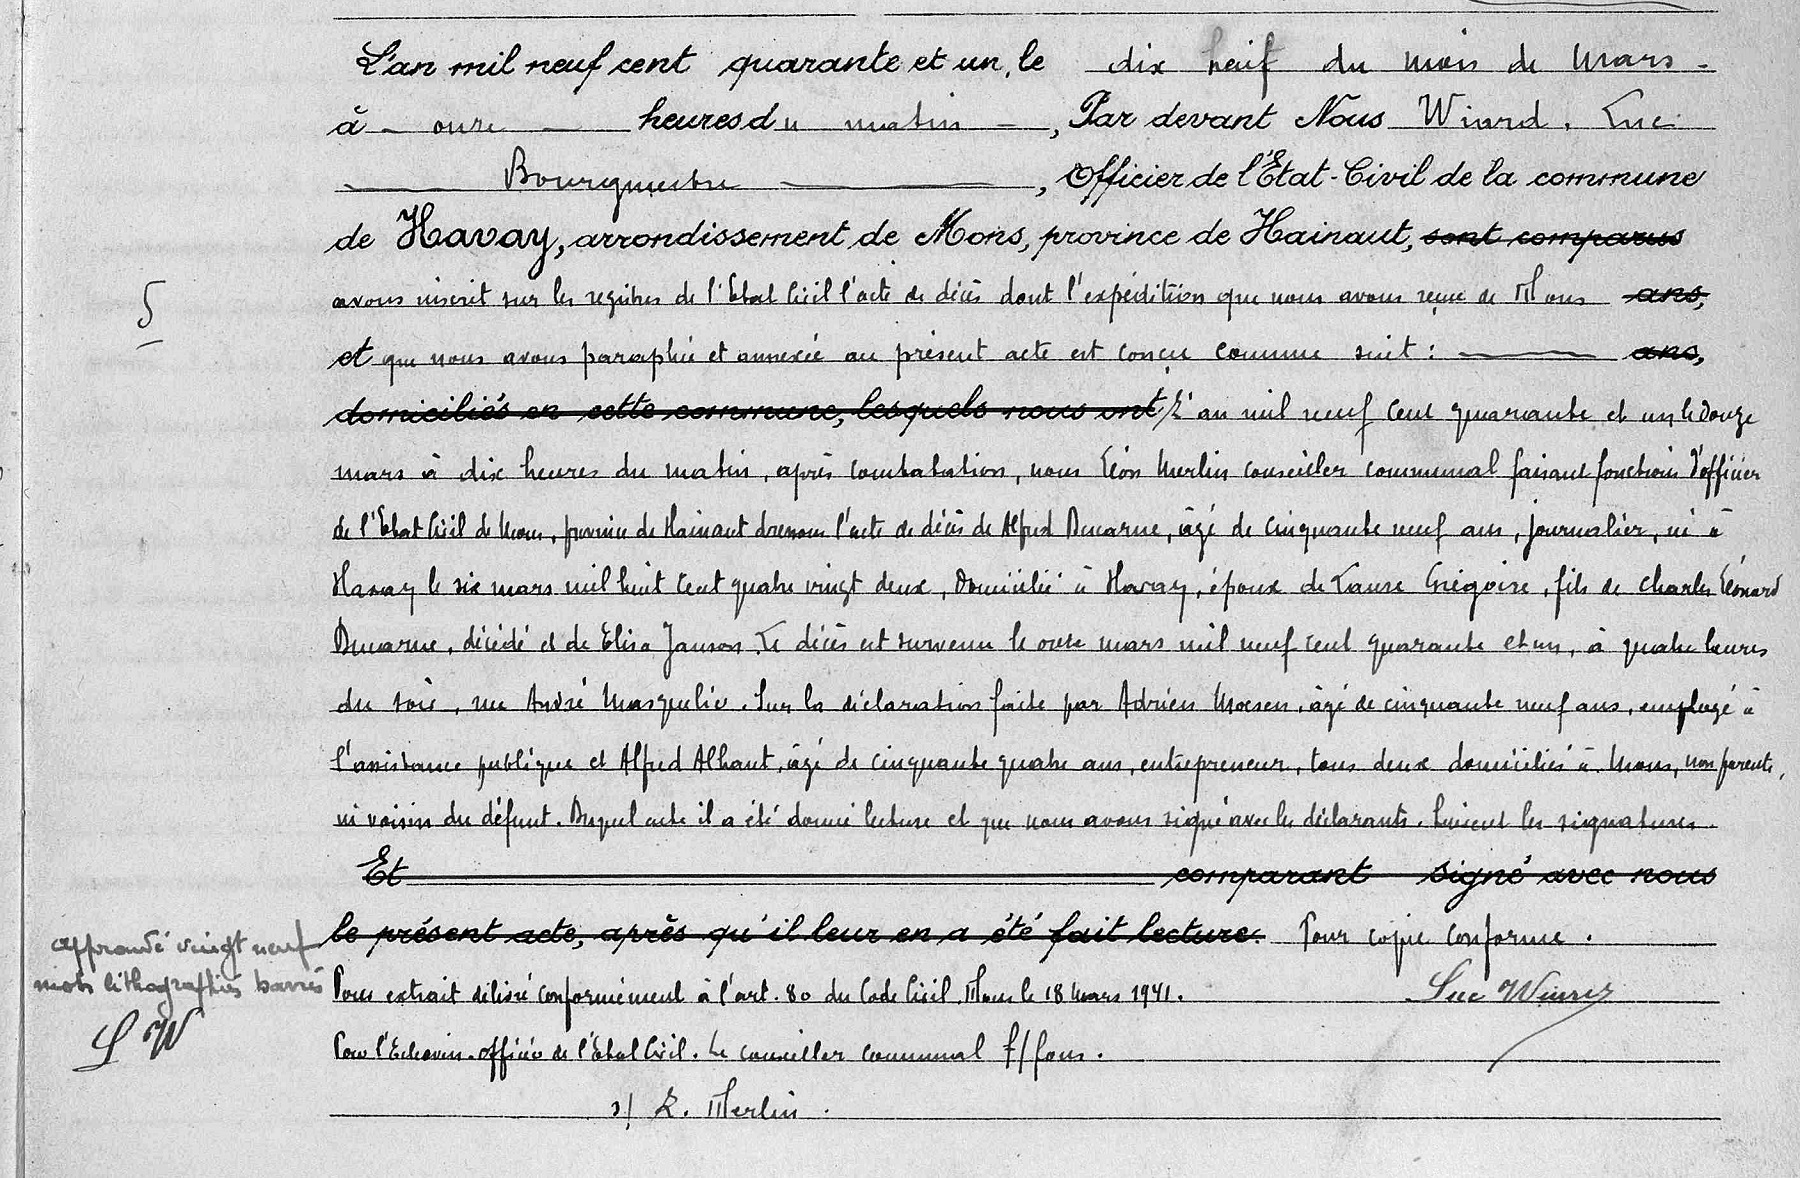 L'an mil neuf cent quarante et un, le dix neuf du mois de Mars -
à - onze - heures du matin -, Par devant Nous Wiard, Luc
Bourgmestre, Officier de l'Etat-Civil de la commune
de Havay, arrondissement de Mons, province de Hainaut, sont comparus
avons inscrit sur les registres de l'Etat Civil l'acte de décès dont l'expédition que nous avons reçue de Mons ans,
5
et que nous avons paraphée et annexée au présent acte est conçu comme suit : ans,
domiciliés en cette commune, lesquels nous ont L'an mil neuf cent quarante et un, le douze
mars à dix heures du matin, après constatation, nous Léon Merlin conseiller communal faisant fonctions d'officier
de l'Etat Civil de Mons, province de Hainaut dressons l'acte de décès de Alfred Ducarne, âgé de cinquante neuf ans, journalier, né à
Havay le six mars mil huit cent quatre vingt deux, domicilié à Havay, époux de Laure Grégoire, fils de Charles Léonard
Ducarne, décédé et de Elisa Janson. Le décès est survenu le onze mars mil neuf cent quarante et un, à quatre heures
du soir, rue André Masquelier. Sur la déclaration faite par Adrien Moesen, âgé de cinquante neuf ans, employé à
l'assistance publique et Alfred Alhant, âgé de cinquante quatre ans, entrepreneur, tous deux domiciliés à Mons, non parents,
ni voisin du défunt. Duquel acte il a été donné lecture et que nous avons signé avec les déclarants. Suivent les signatures.
Et comparant signé avec nous
le présent acte, après qu'il leur en a été fait lecture. Pour copie conforme.
approuvé vingt neuf
mots lithographiés barrés
L W
Pour extrait délivré conformément à l'art. 80 du Code Civil. Mons le 18 Mars 1941. Luc Wiard
Pour l'Echevin-officier de l'Etat Civil. Le conseiller communal f/fons.
s/ L. Merlin.